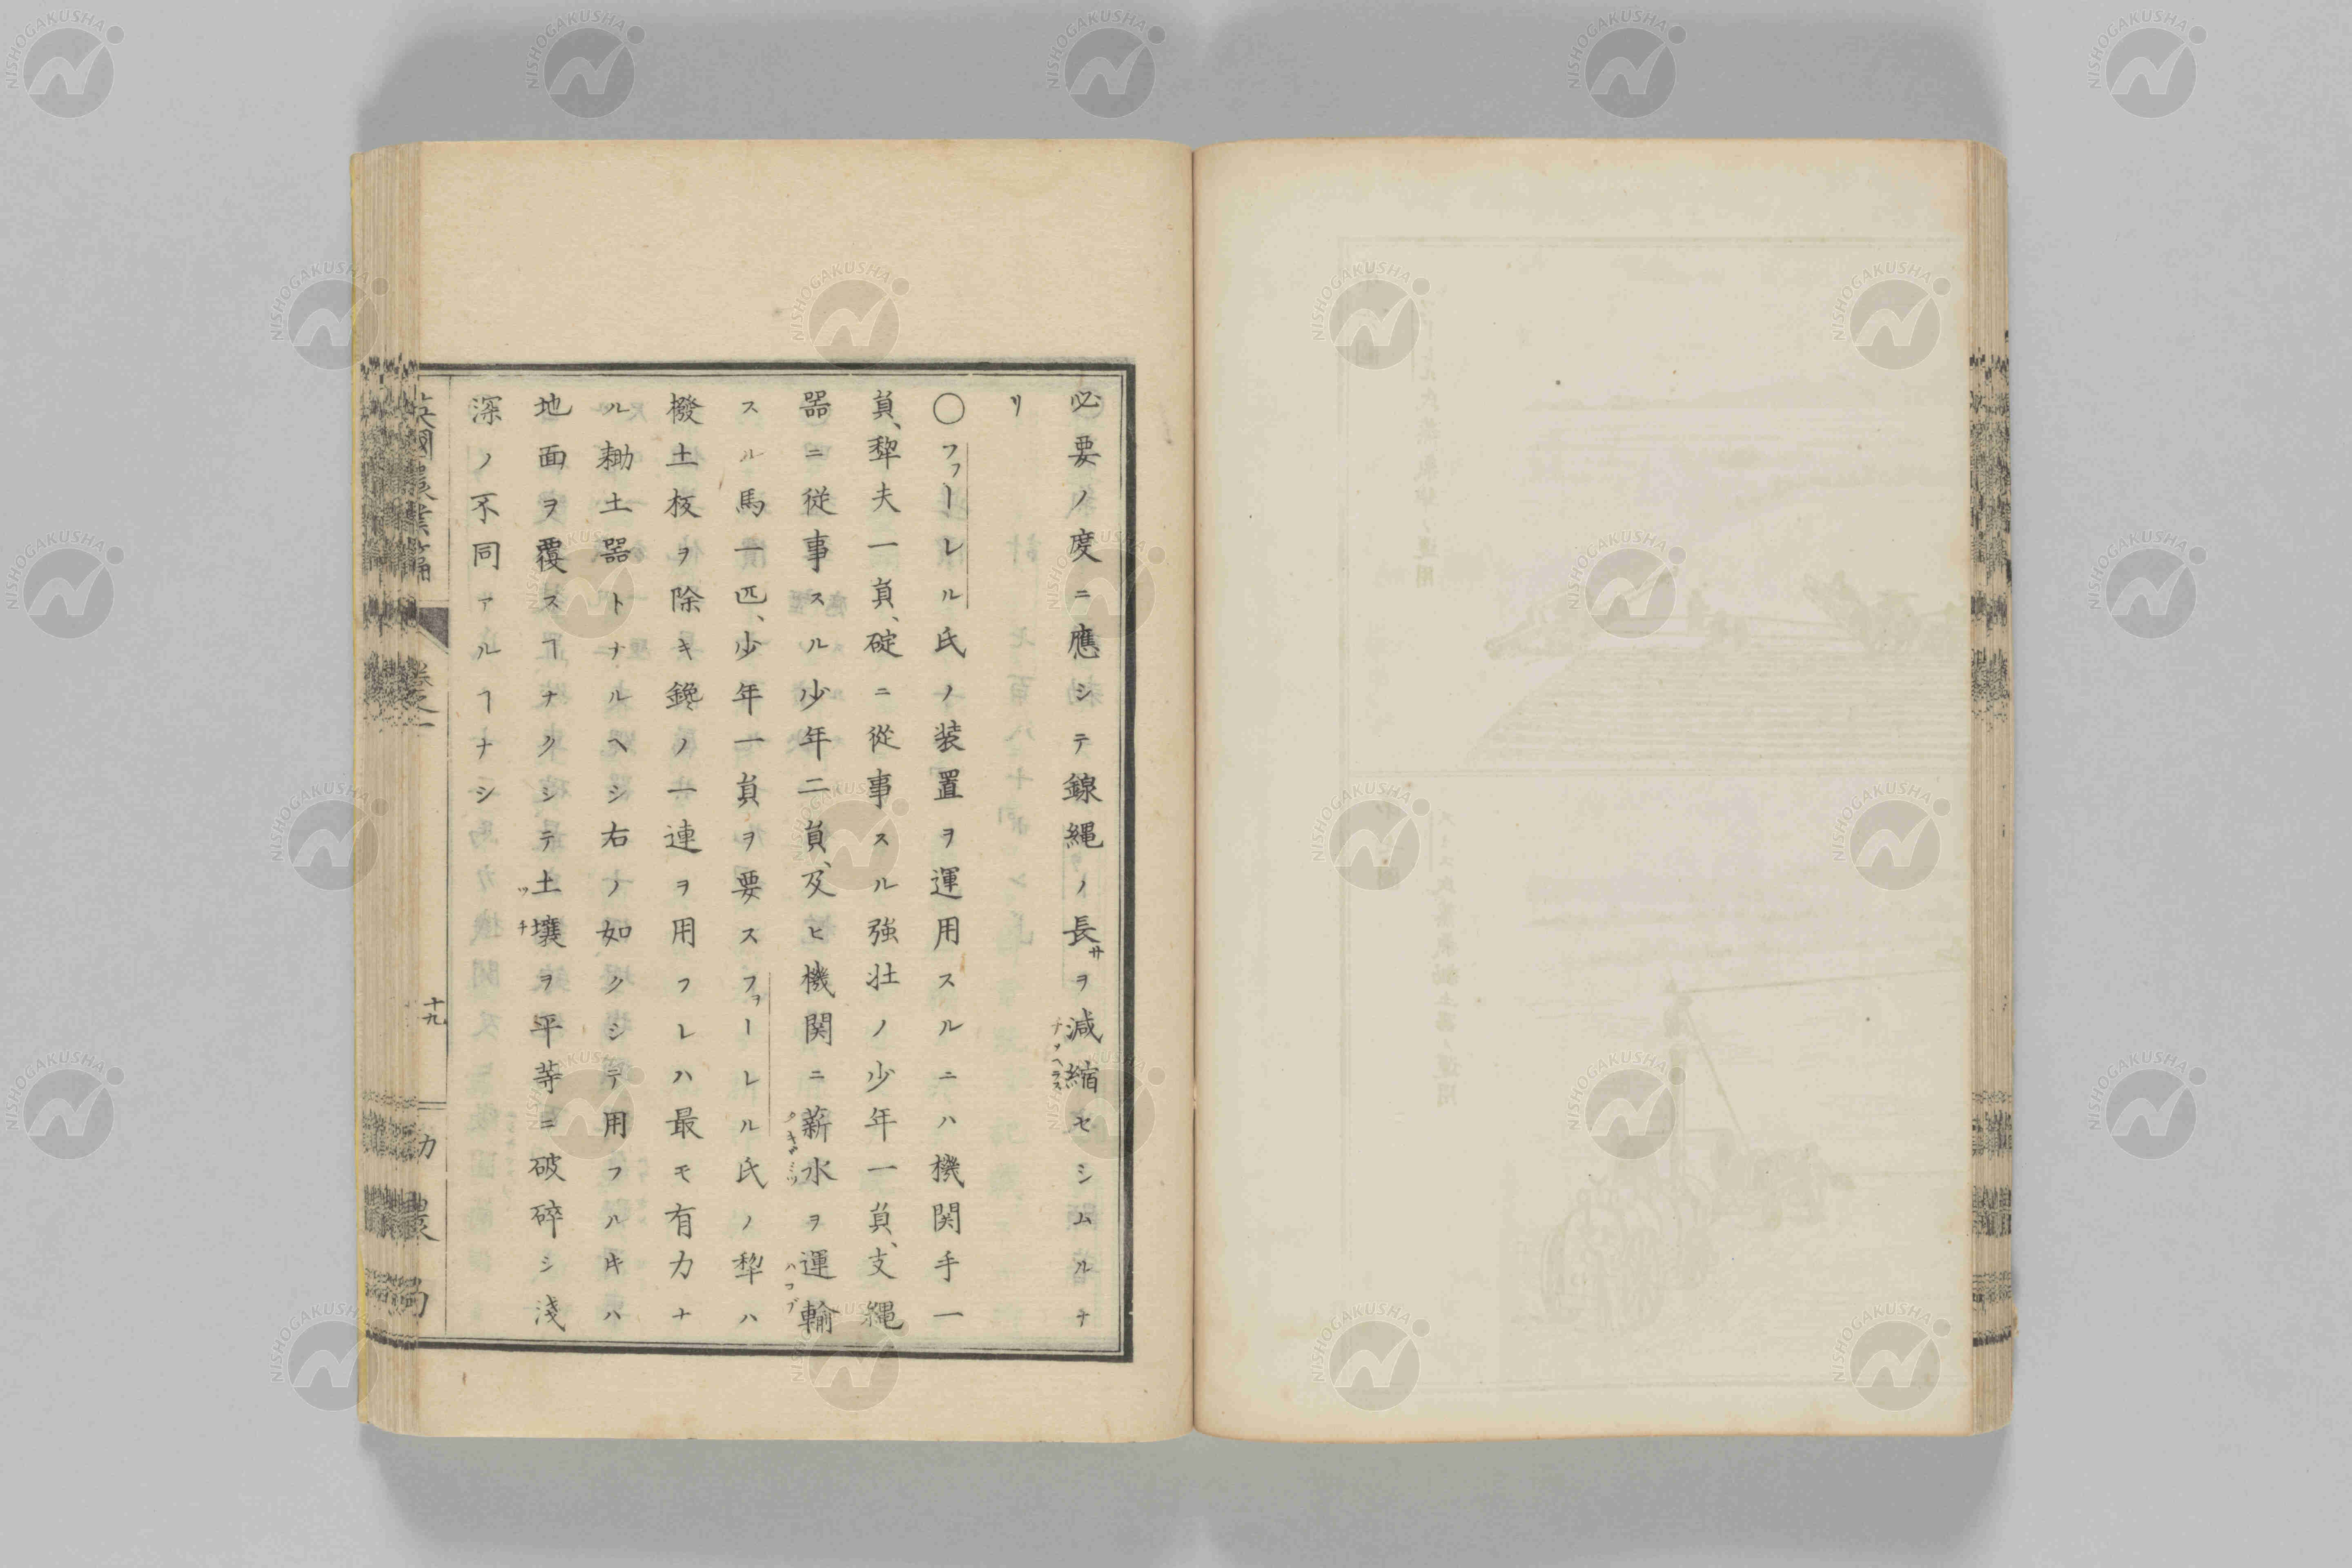 必要ノ度ニ應シテ線縄ノ長サヲ減縮セシムルナ
リ
〇フォーレル氏ノ装置ヲ運用スルニハ機関手一
員、犂夫一員、碇ニ從事スル強壮ノ少年一員、支縄
器ニ従事スル少年二員、及ヒ機関ニ薪水ヲ運輸
スル馬一匹、少年一員ヲ要スフォーレル氏ノ犂ハ
橃土板ヲ除キ鑱ノ一連ヲ用フレハ最モ有力ナ
ル耡土器トナルヘシ右ノ如クシテ用フルキハ
地面ヲ覆スヿナクシテ土壤ヲ平等ニ破碎シ淺
深ノ不同アルヿナシ
英國農業篇
卷之一
十九
勸農局
NISHOGAKUSHA